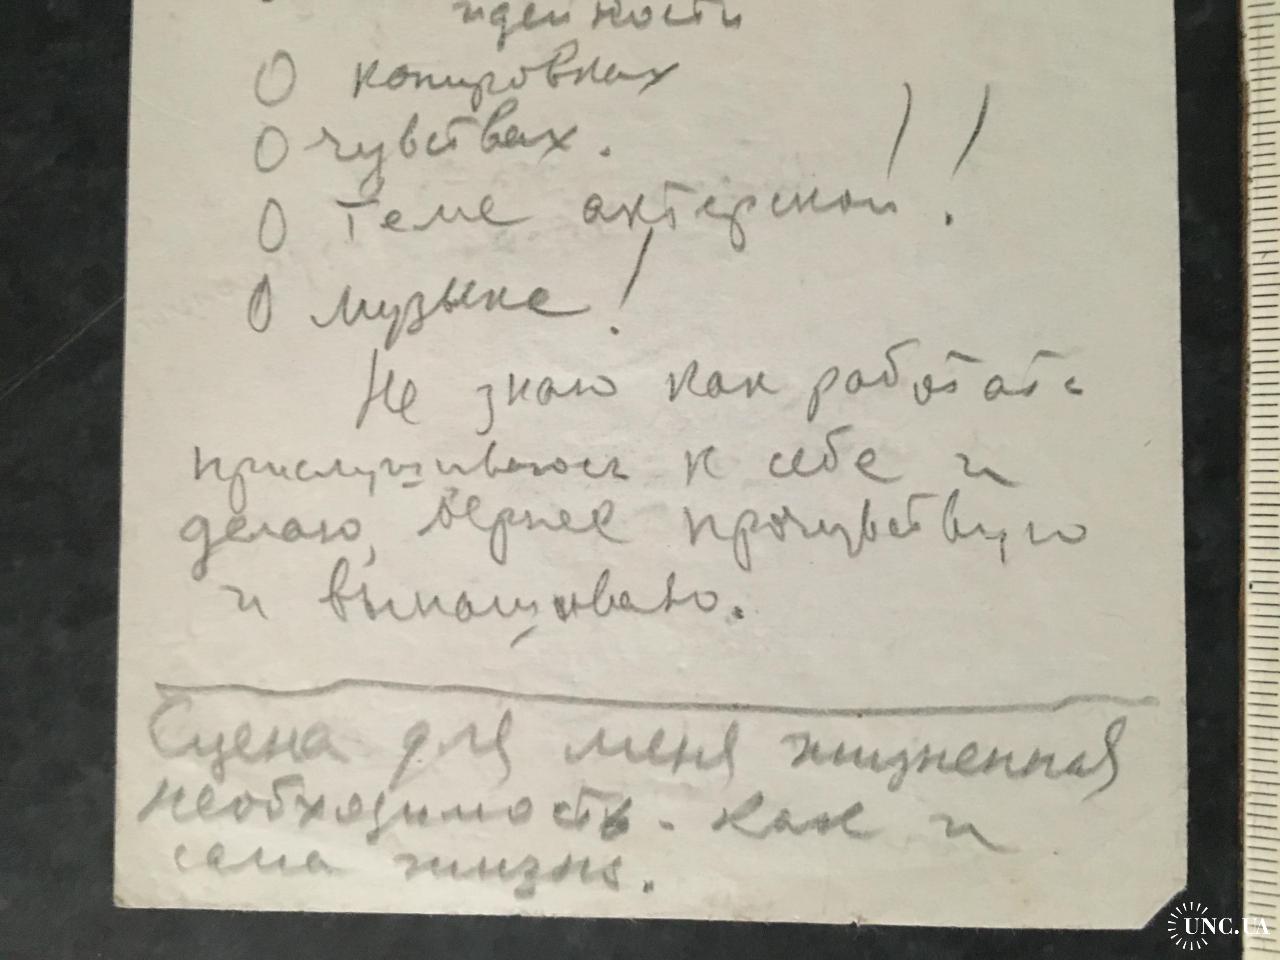 идейности
О копировках
О чувствах.
О теме актерской!!
О музыке!
Не знаю как работать
прислушиваюсь к себе и
делаю, вернее прочувствую
и вынашиваю.
Сцена для меня жизненная
необходимость. как и
сама жизнь.
UNC.UA